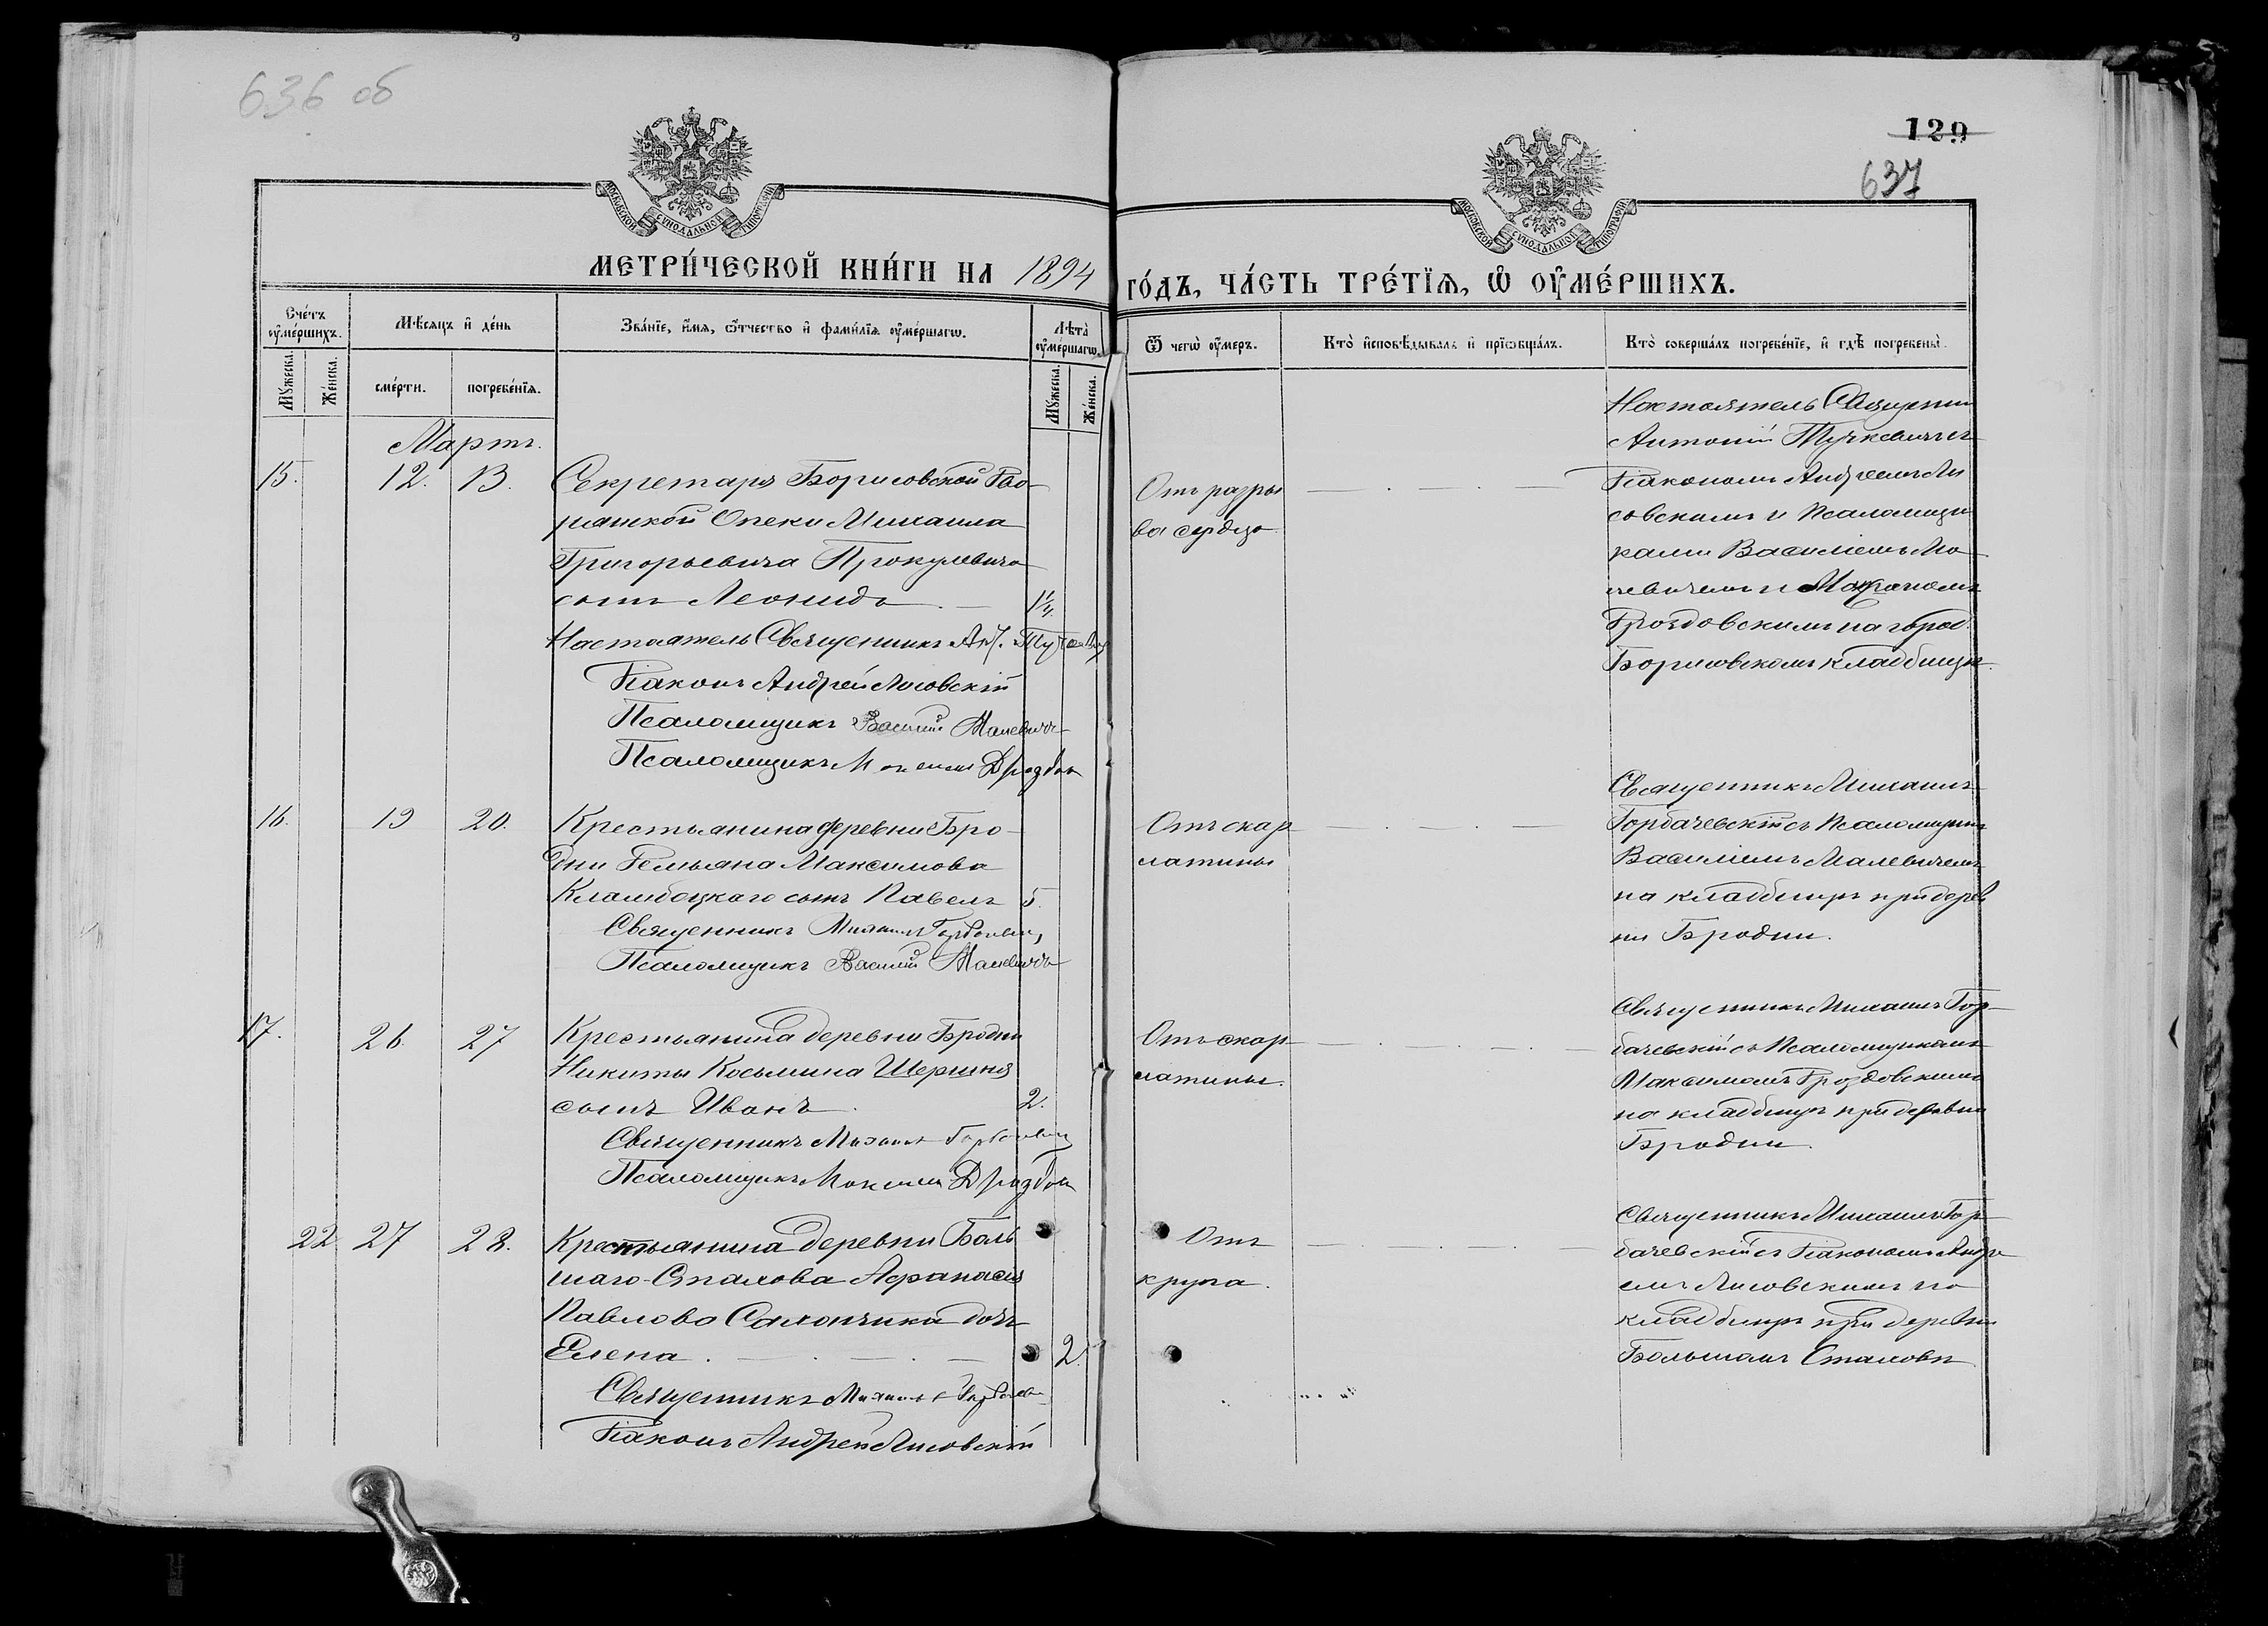 636 об
129
637
МОСКОВСКОЙ СУНОДАЛЬНОЙ ТИПОГРАФІИ
МОСКОВСКОЙ СУНОДАЛЬНОЙ ТИПОГРАФІИ
МЕТРИ́ЧЕСКОЙ КНИ́ГИ НА 1894
ГО́ДЪ, ЧА́СТЬ ТРЕ́ТЇѦ, Ѡ҆ ОУ҆МЕ́РШИХЪ.
Счéтъ оу҆мéршихъ.
Мѣсяцъ и҆ дéнь
Звáнїе, и҆́мя, ѻ҆́тчество и҆ фамѝлїѧ оу҆мéршагѡ.
Лѣтà оу҆мéршагѡ.
Мꙋжеска.
Жéнска.
смéрти.
погребéнїѧ.
Мꙋжеска.
Жéнска.
Ѿ чегѡ̀ оу҆́меръ.
Ктò и҆сповѣ́дывалъ и҆ прїѡбщáлъ.
Ктò совершáлъ погребéнїе, и҆ гдѣ̀ погребены̀.
Мартъ.
15. 12. 13. Секретаря Борисовской Дво-
рянской Опеки Михаила
Григорьевича Прокулевича
сынъ Леонидъ. — 1¼
Настоятель Священникъ Ант. Тучкевичъ
Діаконъ Андрей Лисовскій
Псаломщикъ Василій Малевичъ
Псаломщикъ Максимъ Дроздов
Отъ разры
ва сердца
Настоятель Священни
Антоній Тучкевичъ съ
Діакономъ Андреемъ Ли
совскимъ и Псаломщи
ками Василіемъ Ма
левичемъ и Максимомъ
Дроздовскимъ на город.
Борисовскомъ кладбищѣ.
16. 19 20. Крестьянина деревни Бро-
дни Демьяна Максимова
сынъ Павелъ 5.
Священникъ Михаилъ Горбачевск
Псаломщикъ Василій Малевичъ
Отъ скар
латины
Священникъ Михаилъ
Горбачевскій съ Псаломщик
Василіемъ Малевичемъ
на кладбищѣ при дерев
ни Бродни.
17. 26. 27 Крестьянина деревни Бродни
Никиты Косьмина Шершня
сынъ Иванъ. 2.
Священникъ Михаилъ Горбачевск
Псаломщикъ Максимъ Дроздов
Отъ скар
латины.
Священникъ Михаилъ Гор-
бачевскій съ Псаломщикомъ
Максимомъ Дроздовскимъ
на кладбищѣ при деревни
Бродни.
22 27 28. Крестьянина деревни Боль
шаго-Стахова Афанасія
Павлова Сахончика дочь
Елена. — 2.
Священникъ Михаилъ Горбачев
Діаконъ Андрей Лисовскій
Отъ
крупа.
Священникъ Михаилъ Гор-
бачевскій съ Діакономъ Андре
емъ Лисовскимъ на
кладбищѣ при деревни
Большомъ Стаховѣ